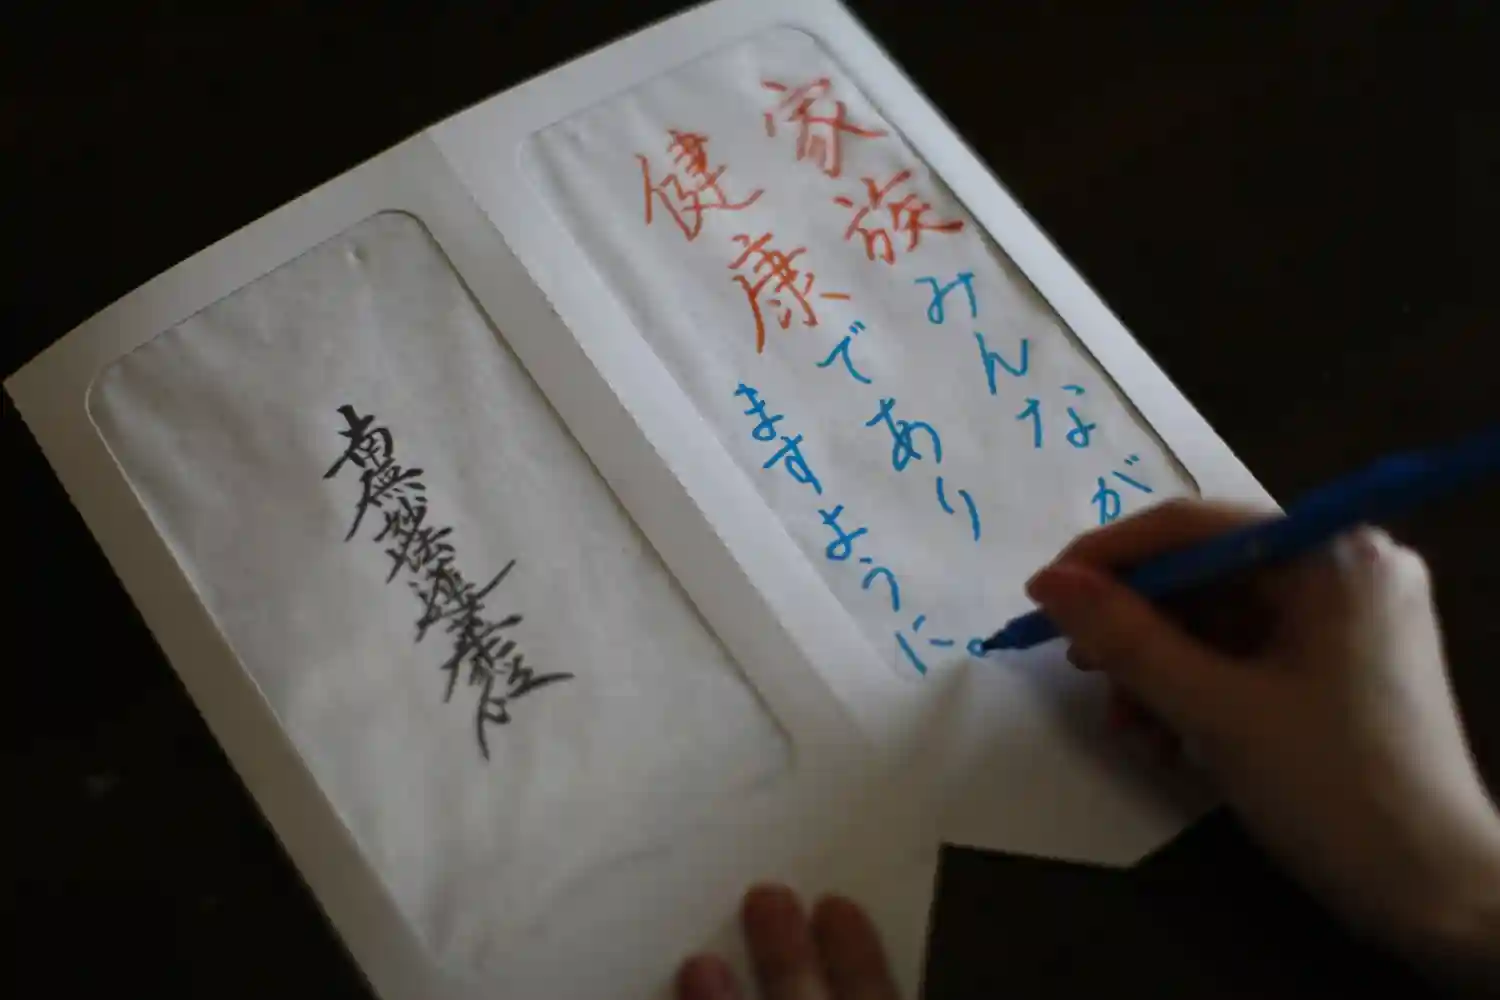 家族みんなが
健康であり
ますように。
南無妙法蓮華経